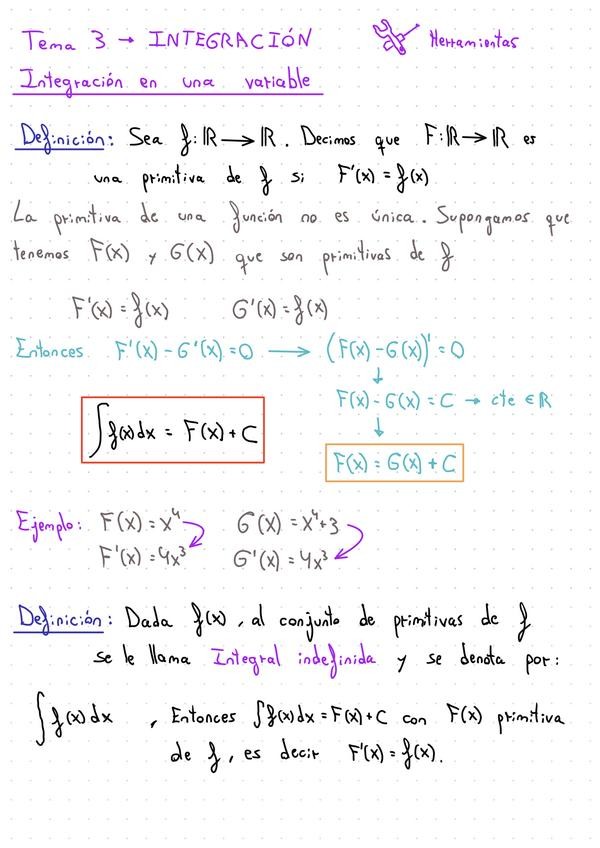 Tema 3 → INTEGRACIÓN
Herramientas
Integración en una variable
Definición: Sea f: ℝ → ℝ. Decimos que F: ℝ → ℝ es
una primitiva de f si F'(x) = f(x)
La primitiva de una función no es única. Supongamos que
tenemos F(x) y G(x) que son primitivas de f
F'(x) = f(x) G'(x) = f(x)
Entonces F'(x) - G'(x) = 0 → (F(x) - G(x))' = 0
↓
F(x) - G(x) = C → cte ∈ ℝ
↓
∫f(x)dx = F(x) + C
F(x) = G(x) + C
Ejemplo: F(x) = x⁴ G(x) = x⁴+3
F'(x) = 4x³ G'(x) = 4x³
Definición: Dada f(x), al conjunto de primitivas de f
se le llama Integral indefinida y se denota por:
∫f(x)dx , Entonces ∫f(x)dx = F(x) + C con F(x) primitiva
de f, es decir F'(x) = f(x).